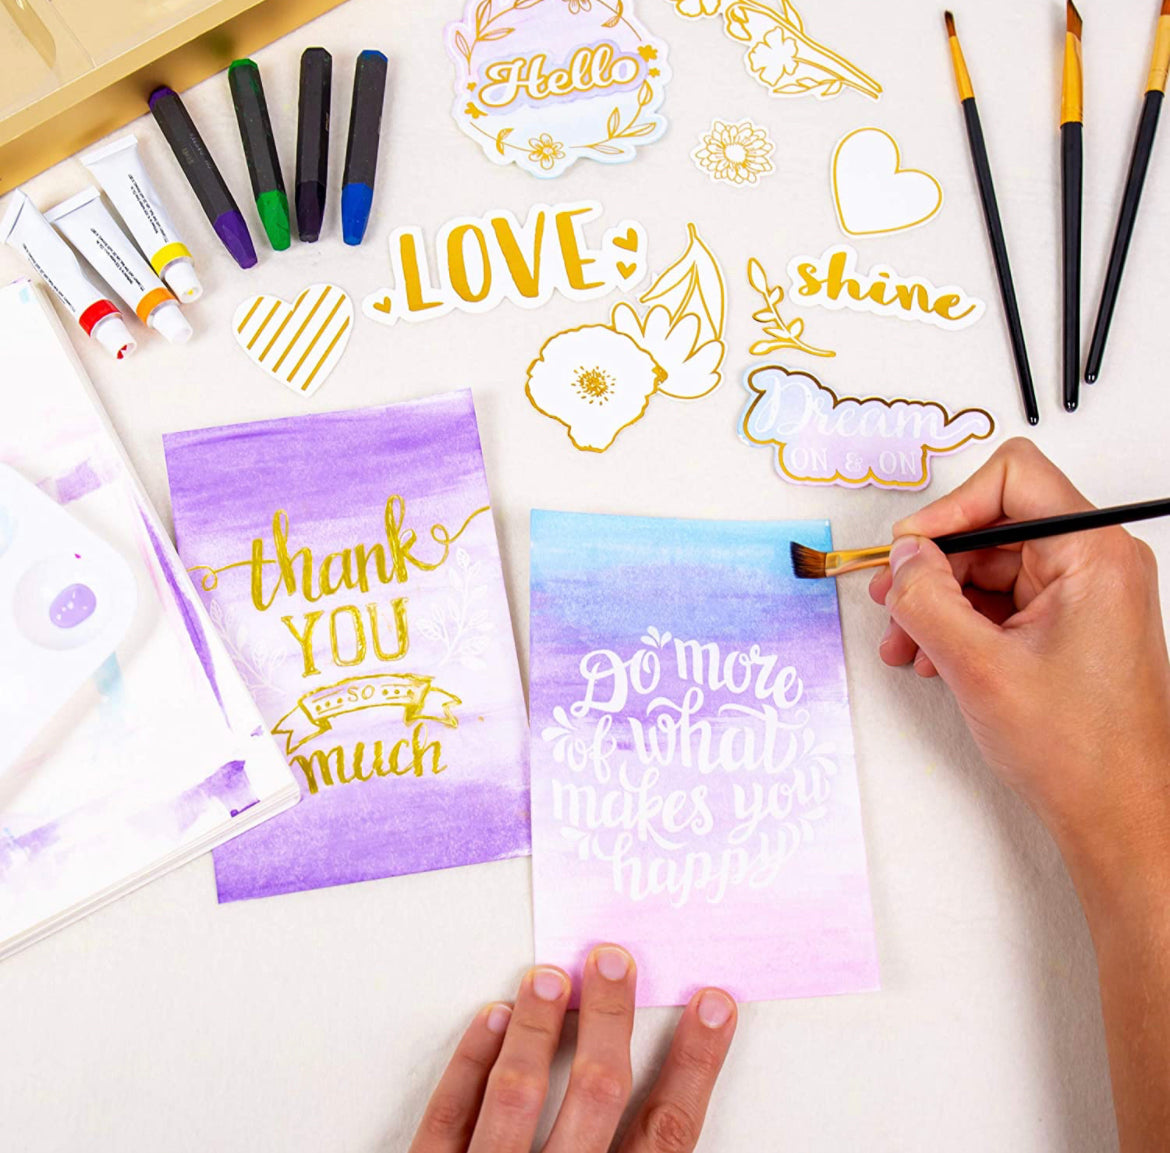 Hello
LOVE
shine
Dream
ON & ON
thank
YOU
SO
much
Do more
of what
makes you
happy